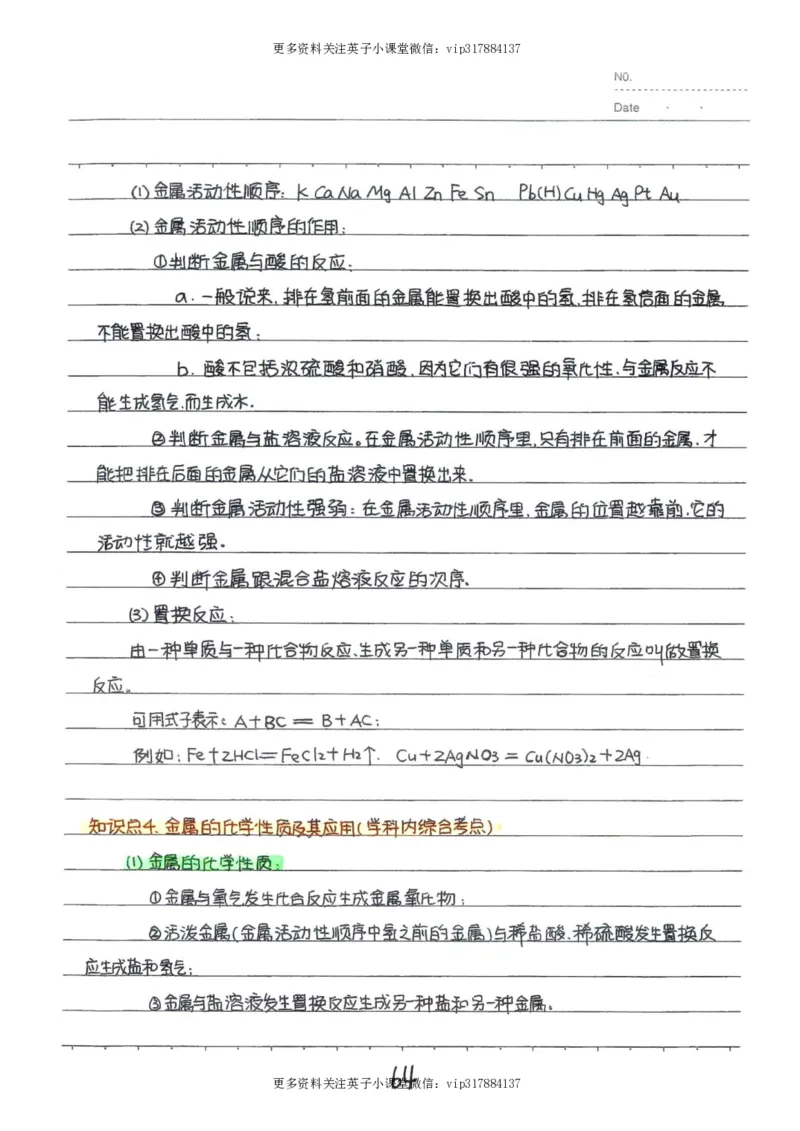 更多资料关注英子小课堂微信：vip317884137
NO.
Date · ·
(1)金属活动性顺序：K Ca Na Mg Al Zn Fe Sn Pb(H)Cu Hg Ag Pt Au
(2)金属活动性顺序的作用：
①判断金属与酸的反应：
a. 一般说来，排在氢前面的金属能置换出酸中的氢，排在氢后面的金属
不能置换出酸中的氢；
b. 酸不包括浓硫酸和硝酸，因为它们有很强的氧化性，与金属反应不
能生成氢气，而生成水．
②判断金属与盐溶液反应。在金属活动性顺序里，只有排在前面的金属，才
能把排在后面的金属从它们的盐溶液中置换出来．
③判断金属活动性强弱：在金属活动性顺序里，金属的位置越靠前，它的
活动性就越强．
④判断金属跟混合盐熔液反应的次序．
(3)置换反应：
由一种单质与一种化合物反应、生成另一种单质和另一种化合物的反应叫做置换
反应。
可用式子表示：A+BC＝B+AC；
例如：Fe+2HCl=FeCl2+H2↑． Cu+2AgNO3=Cu(NO3)2+2Ag．
知识点4、金属的化学性质及其应用(学科内综合考点)
(1)金属的化学性质：
①金属与氧气发生化合反应生成金属氧化物；
②活泼金属(金属活动性顺序中氢之前的金属)与稀盐酸、稀硫酸发生置换反
应生成盐和氢气；
③金属与盐溶液发生置换反应生成另一种盐和另一种金属。
64
更多资料关注英子小课堂微信：vip317884137